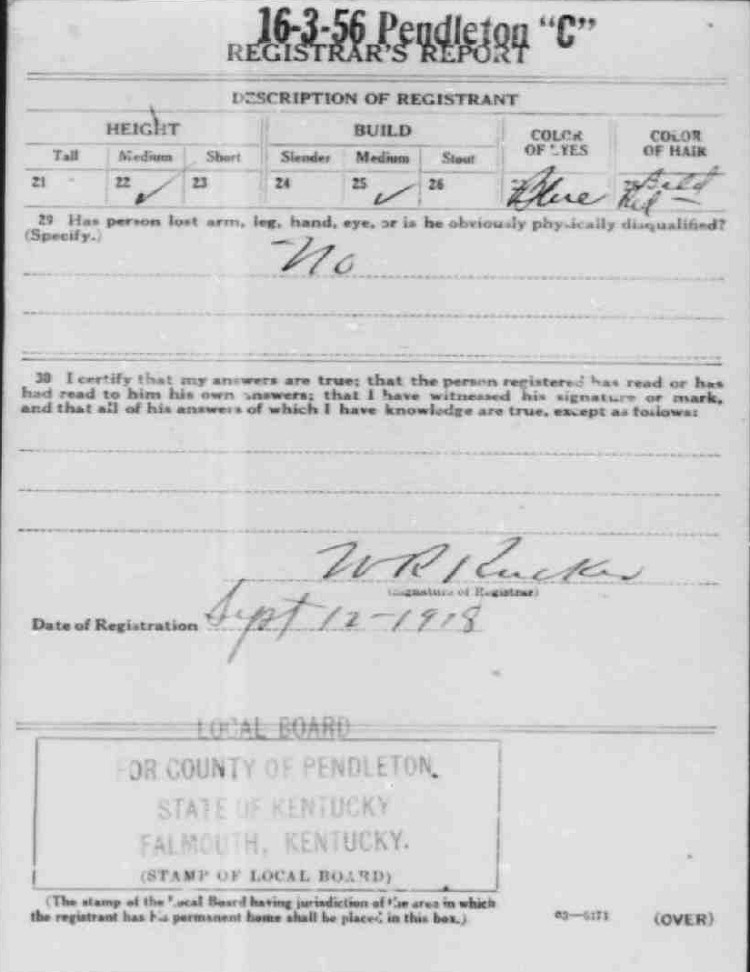 16-3-56 Pendleton "C"
REGISTRAR'S REPORT
DESCRIPTION OF REGISTRANT
HEIGHT BUILD COLOR OF EYES COLOR OF HAIR
Tall Medium Short Slender Medium Stout
21 22 ✓ 23 24 25 ✓ 26 27 Blue 28 Bald Red
29 Has person lost arm, leg, hand, eye, or is he obviously physically disqualified?
(Specify.)
No
30 I certify that my answers are true; that the person registered has read or has
had read to him his own answers; that I have witnessed his signature or mark,
and that all of his answers of which I have knowledge are true, except as follows:
W R Rucker
(Signature of Registrar)
Date of Registration Sept 12-1918
LOCAL BOARD
FOR COUNTY OF PENDLETON.
STATE OF KENTUCKY
FALMOUTH, KENTUCKY.
(STAMP OF LOCAL BOARD)
(The stamp of the Local Board having jurisdiction of the area in which
the registrant has his permanent home shall be placed in this box.)
03—6171 (OVER)